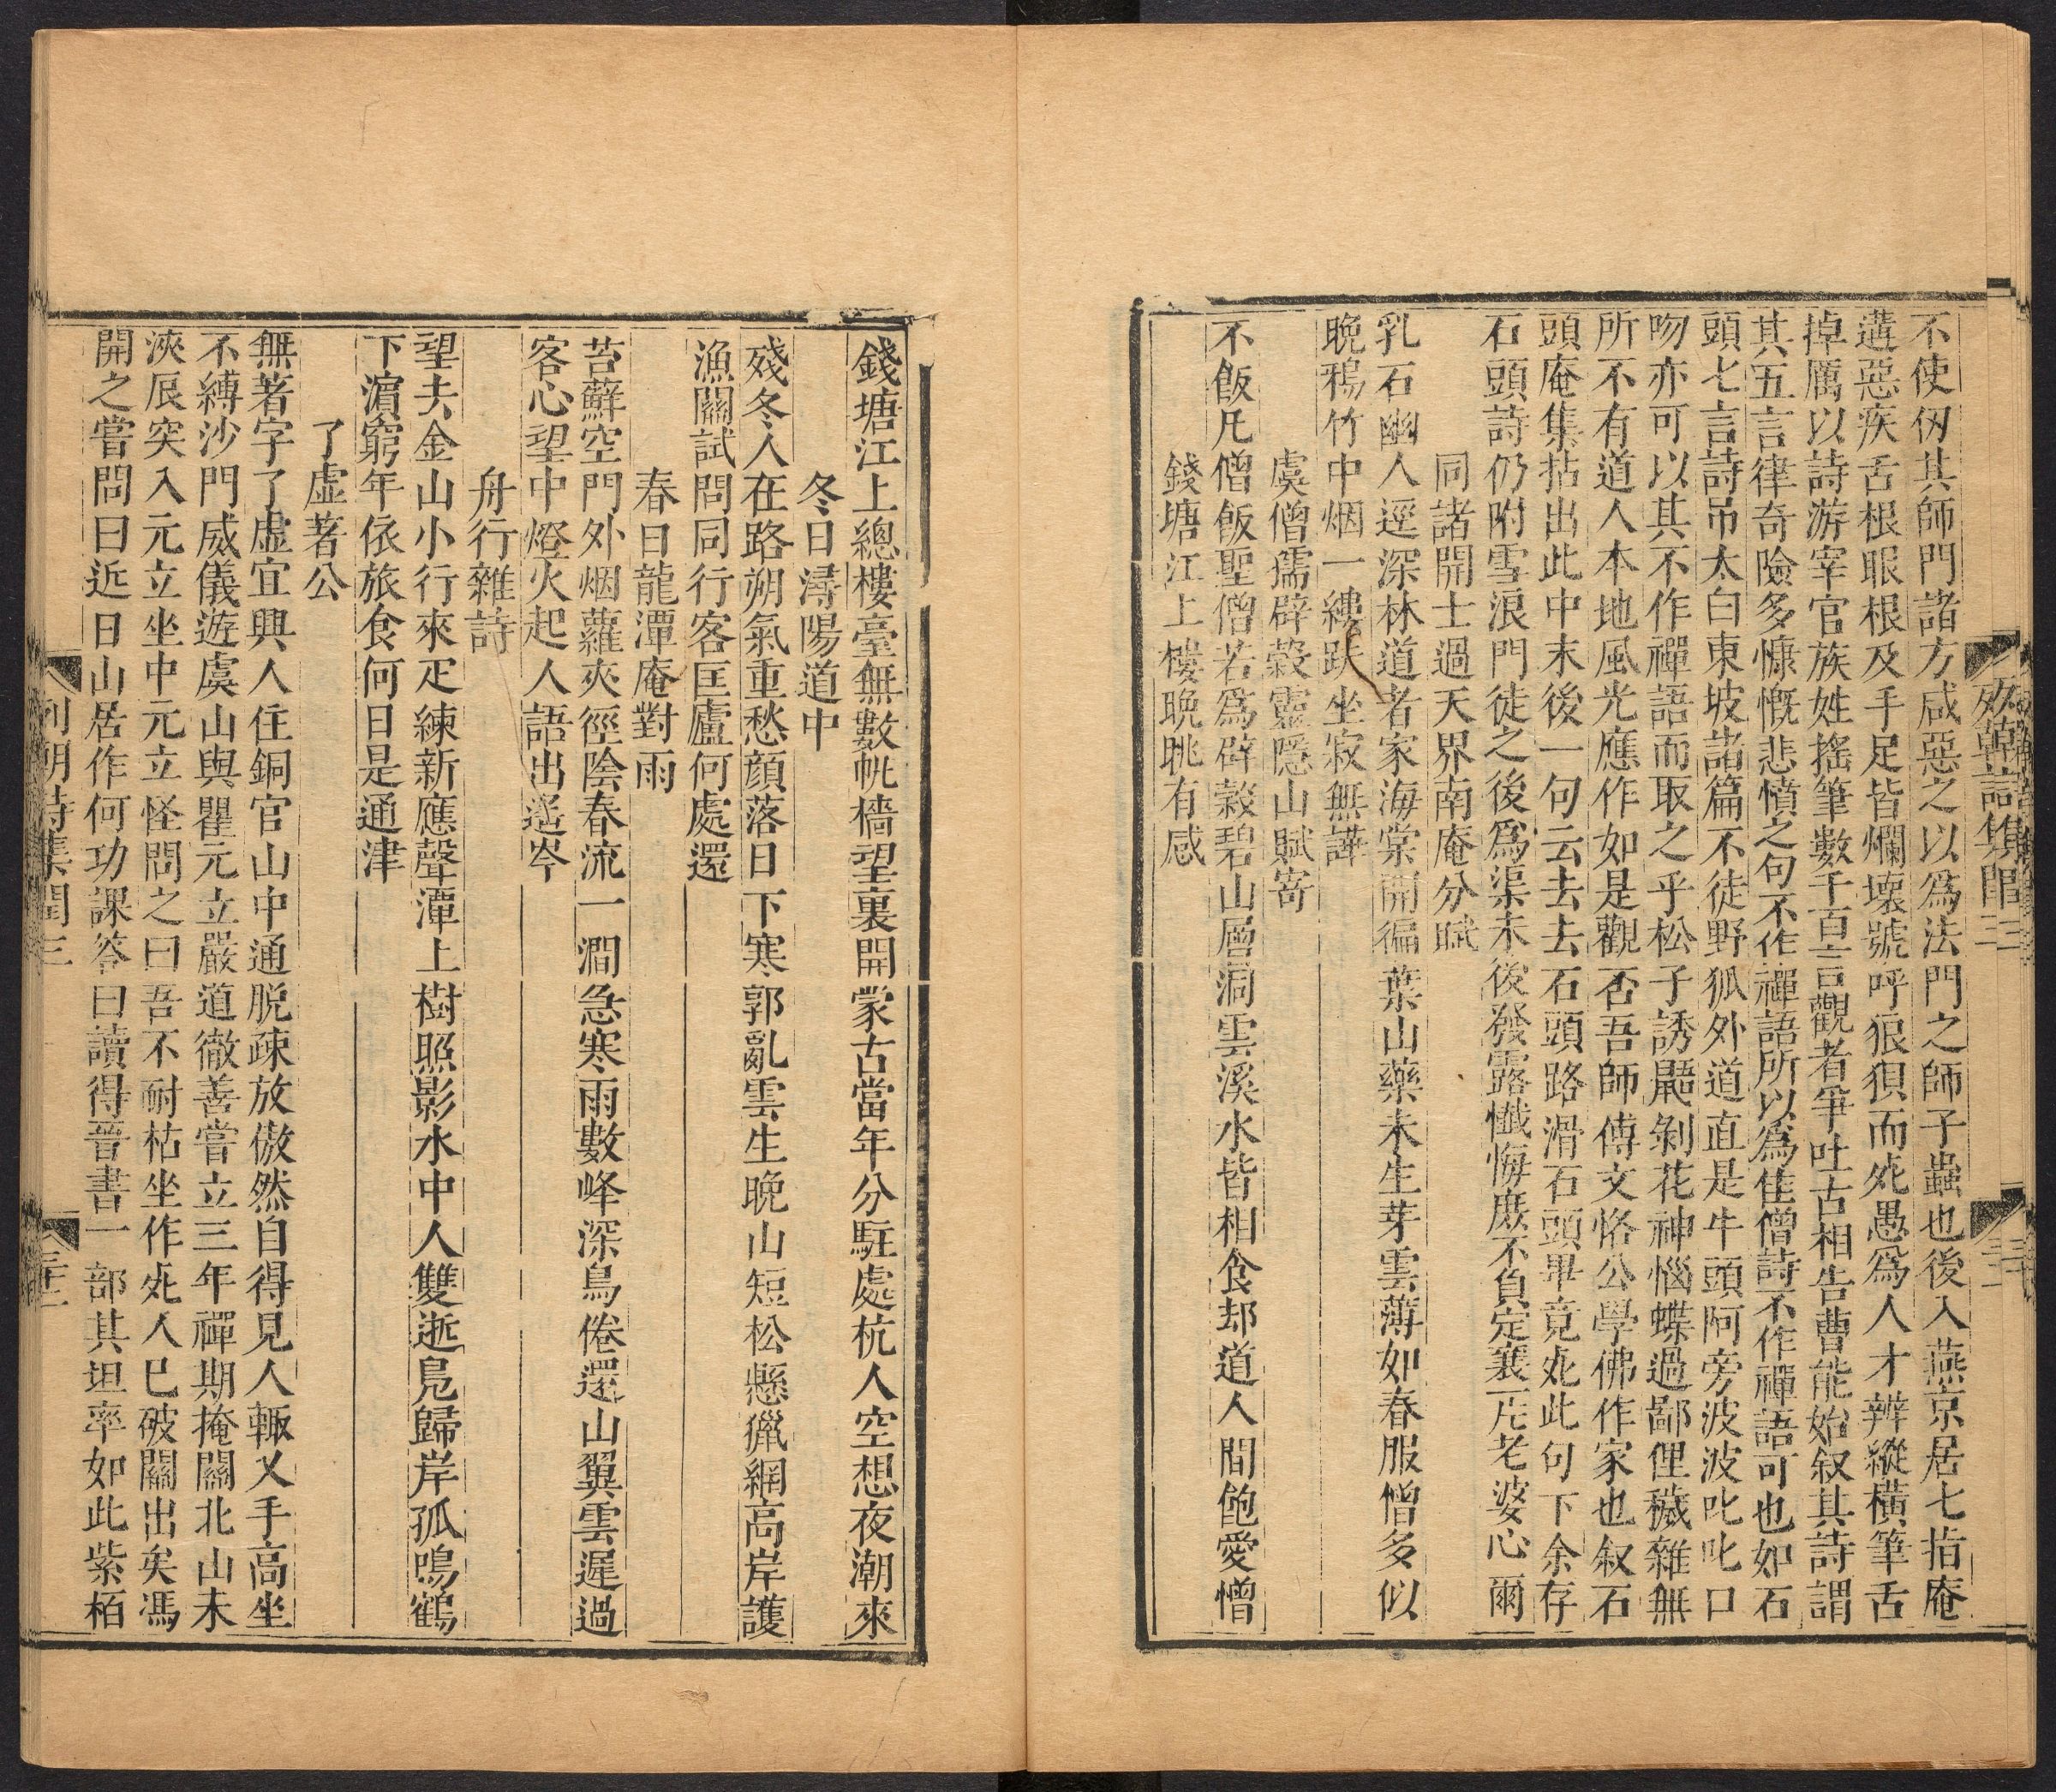 列朝詩集閏三
不使仞其師門諸方咸惡之以爲法門之師子蟲也後入燕京居七指庵
遘惡疾舌根眼根及手足皆爛壞號呼狼狽而死愚爲人才辨縱橫筆舌
掉厲以詩游宰官族姓搖筆數千百言觀者爭吐古相告曹能始叙其詩謂
其五言律奇險多慷慨悲憤之句不作禪語所以爲佳僧詩不作禪語可也如石
頭七言詩吊太白東坡諸篇不徒野狐外道直是牛頭阿旁波波叱叱口
吻亦可以其不作禪語而取之乎松子誘鼯剝花神惱蝶過鄙俚穢雜無
所不有道人本地風光應作如是觀否吾師傅文恪公學佛作家也叙石
頭庵集拈出此中末後一句云去去石頭路滑石頭畢竟死此句下余存
石頭詩仍附雪浪門徒之後爲渠末後發露懺悔庶不負定襄一片老婆心爾
同諸開士過天界南庵分賦
乳石幽人逕深林道者家海棠開徧葉山藥未生芽雲薄如春服僧多似
晩鴉竹中烟一縷趺坐寂無譁
虞僧孺辟穀靈隱山賦寄
不飯凡僧飯聖僧若爲辟穀碧山層洞雲溪水皆相食却道人間飽愛憎
錢塘江上樓晩眺有感
錢塘江上總樓臺無數帆檣望裏開蒙古當年分駐處杭人空想夜潮來
冬日潯陽道中
殘冬人在路朔氣重愁顔落日下寒郭亂雲生晩山短松懸獵網高岸護
漁關試問同行客匡廬何處還
春日龍潭庵對雨
苔蘚空門外烟蘿夾徑陰春流一澗急寒雨數峰深鳥倦還山翼雲遲過
客心望中燈火起人語出遥岑
舟行雜詩
望夫金山小行來疋練新應聲潭上樹照影水中人雙逝鳧歸岸孤鳴鶴
下濵窮年依旅食何日是通津
了虛著公
無著字了虛宜興人住銅官山中通脱疎放傲然自得見人輙叉手高坐
不縛沙門威儀遊虞山與瞿元立嚴道徹善嘗立三年禪期掩關北山未
浹辰突入元立坐中元立怪問之曰吾不耐枯坐作死人已破關出矣馮
開之嘗問曰近日山居作何功課答曰讀得晉書一部其坦率如此紫栢
列朝詩集閏三